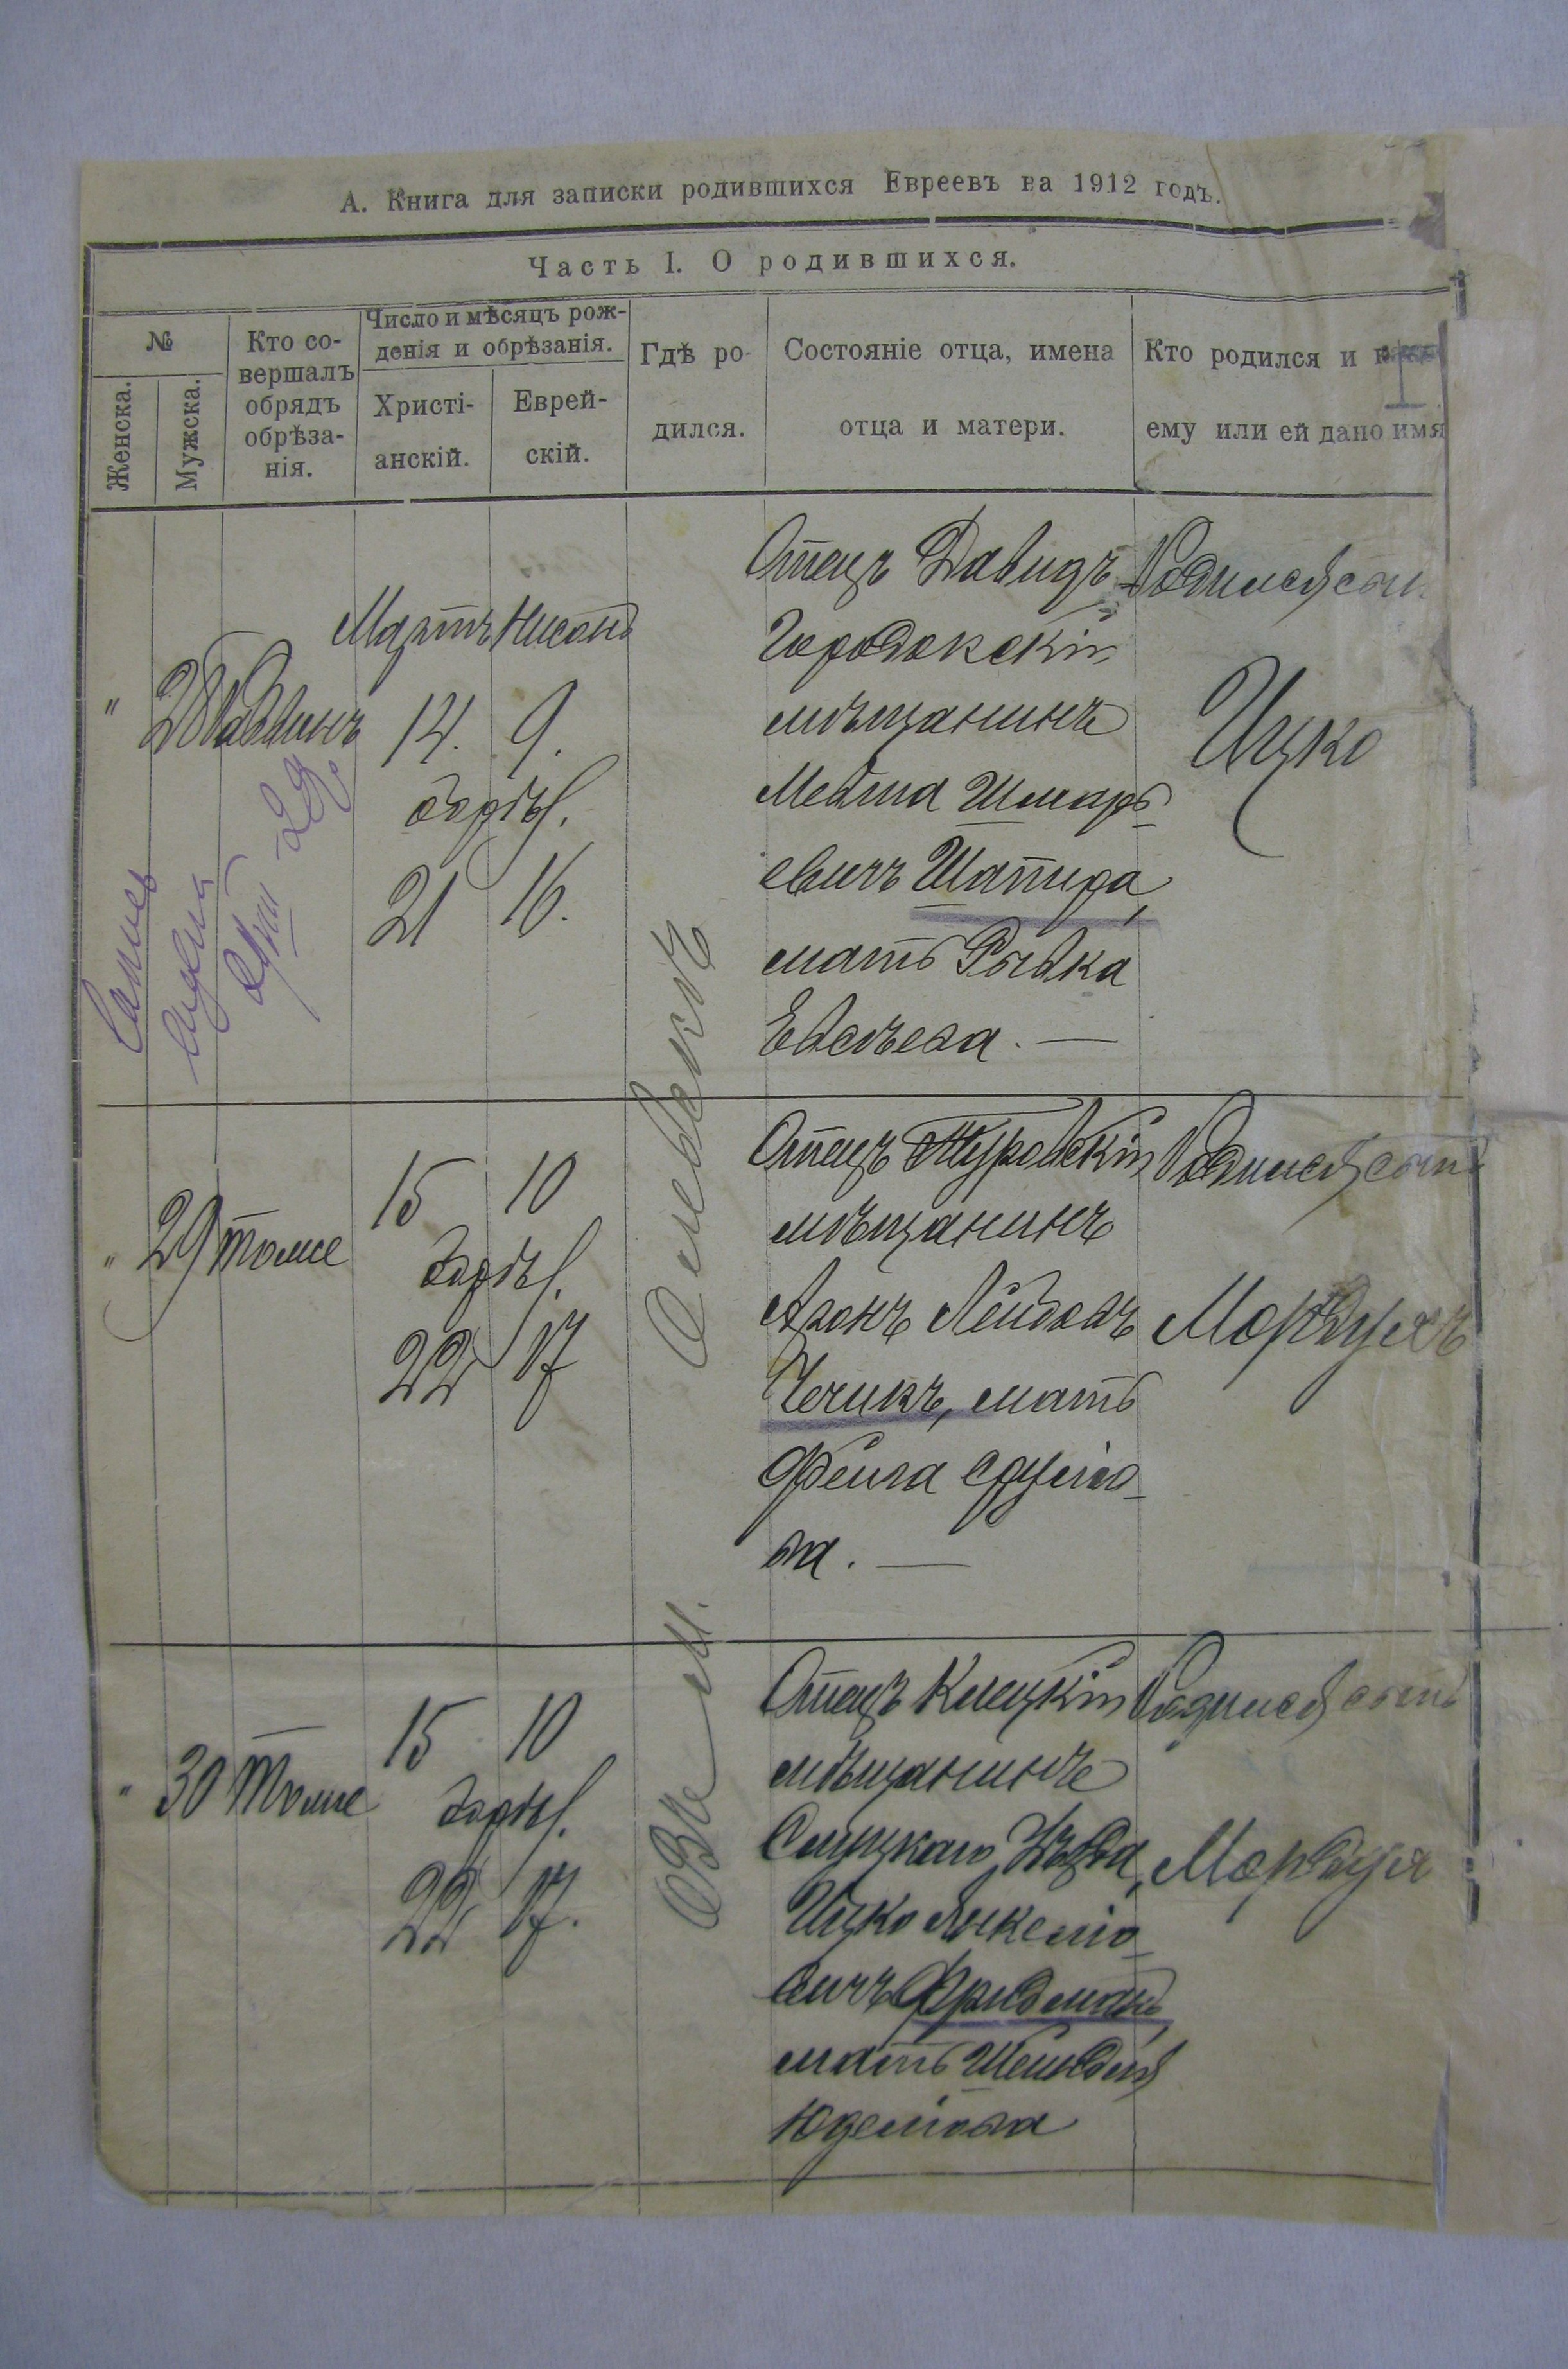 А. Книга для записки родившихся Евреевъ на 1912 годъ.
Часть I. О родившихся.
№
Женска.
Мужска.
Кто со-
вершалъ
обрядъ
обрѣза-
нія.
Число и мѣсяцъ рож-
денія и обрѣзанія.
Христі-
анскій.
Еврей-
скій.
Гдѣ ро-
дился.
Состояніе отца, имена
отца и матери.
Кто родился и
ему или ей дано имя
" 28 Раввинъ
Мартъ Нисанъ
14. 9.
обрѣз.
21 16.
Отецъ Давидъ-
Городокскій
мѣщанинъ
Шмаръ-
евичъ Шапира,
мать Рывка
Евсѣева. —
Родился сынъ
Ицко
" 29 тоже
15 10
обрѣз.
22 17
Отецъ Туровскій
мѣщанинъ
Аронъ Лейбовъ
Чечикъ, мать
Фейга Срулiо-
ва. —
Родился сынъ
Мордухъ
" 30 тоже
15 10
обрѣз.
22 17.
Отецъ Клецкій
мѣщанинъ
Слуцкаго Уѣзда,
Ицко Янкеліо-
вичъ Фридманъ,
мать Шейндля
Юделіова
Родился сынъ
Мордух
Въ м.